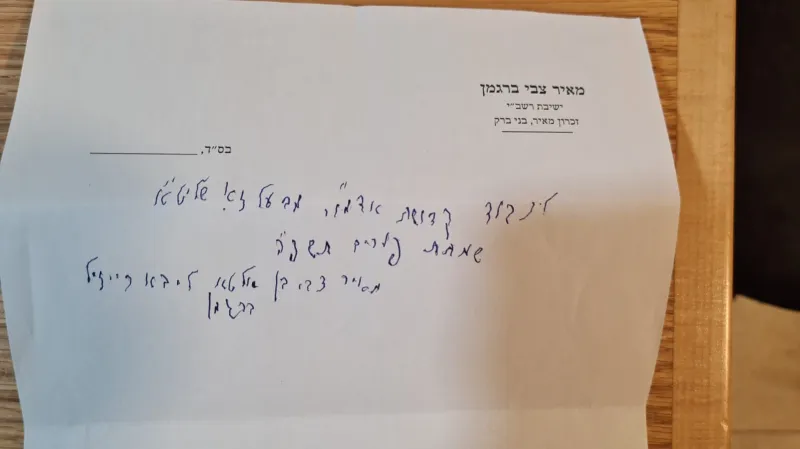 מאיר צבי ברגמן
ישיבת רשב״י
זכרון מאיר, בני ברק
בס״ד,
קדושת אדמו״ר מבעלזא שליט״א
שמחת פורים תשפ״
מאיר צבי בן אלטא ליבא רייזיל
ברגמן